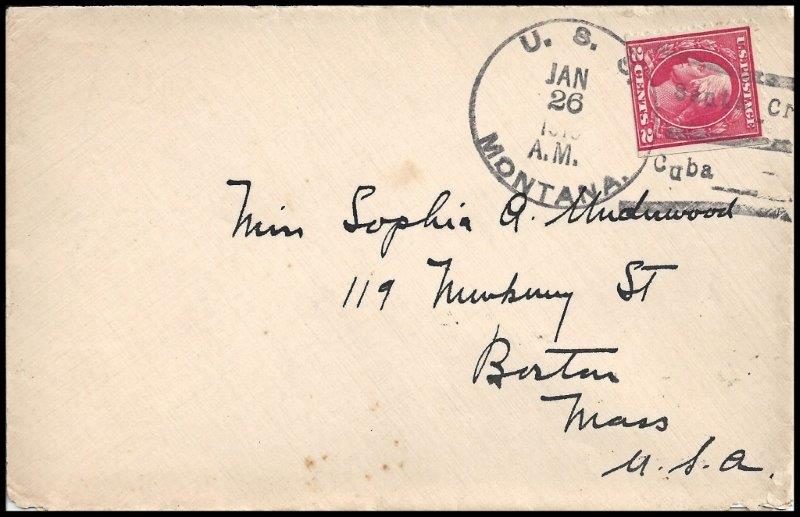 U. S. S.
JAN
26
A.M.
MONTANA.
U.S. POSTAGE
2 CENTS 2
Cuba
Miss Sophia A. Underwood
119 Newbury St
Boston
Mass
U.S.A.